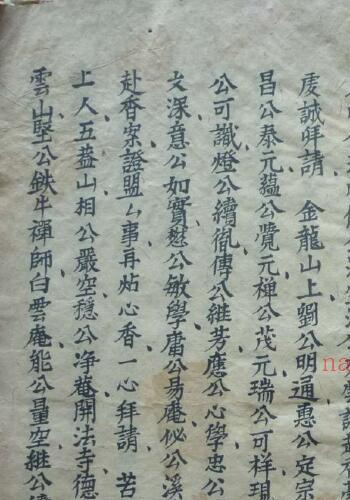 虔誠拜請　金龍山上劉公明通惠公定宗
昌公泰元蘊公覺元禅公茂元瑞公可祥現
公可識燈公續胤傳公継芳應公心學忠公
文深意公如實慜公敏學庸公易庵伩公溪
赴香案證盟厶事再炷心香一心拜請　苦
上人五蓋山相公嚴空穩公净菴開法寺德
雲山堅公鉄牛禪師白雲庵能公量空継公
na